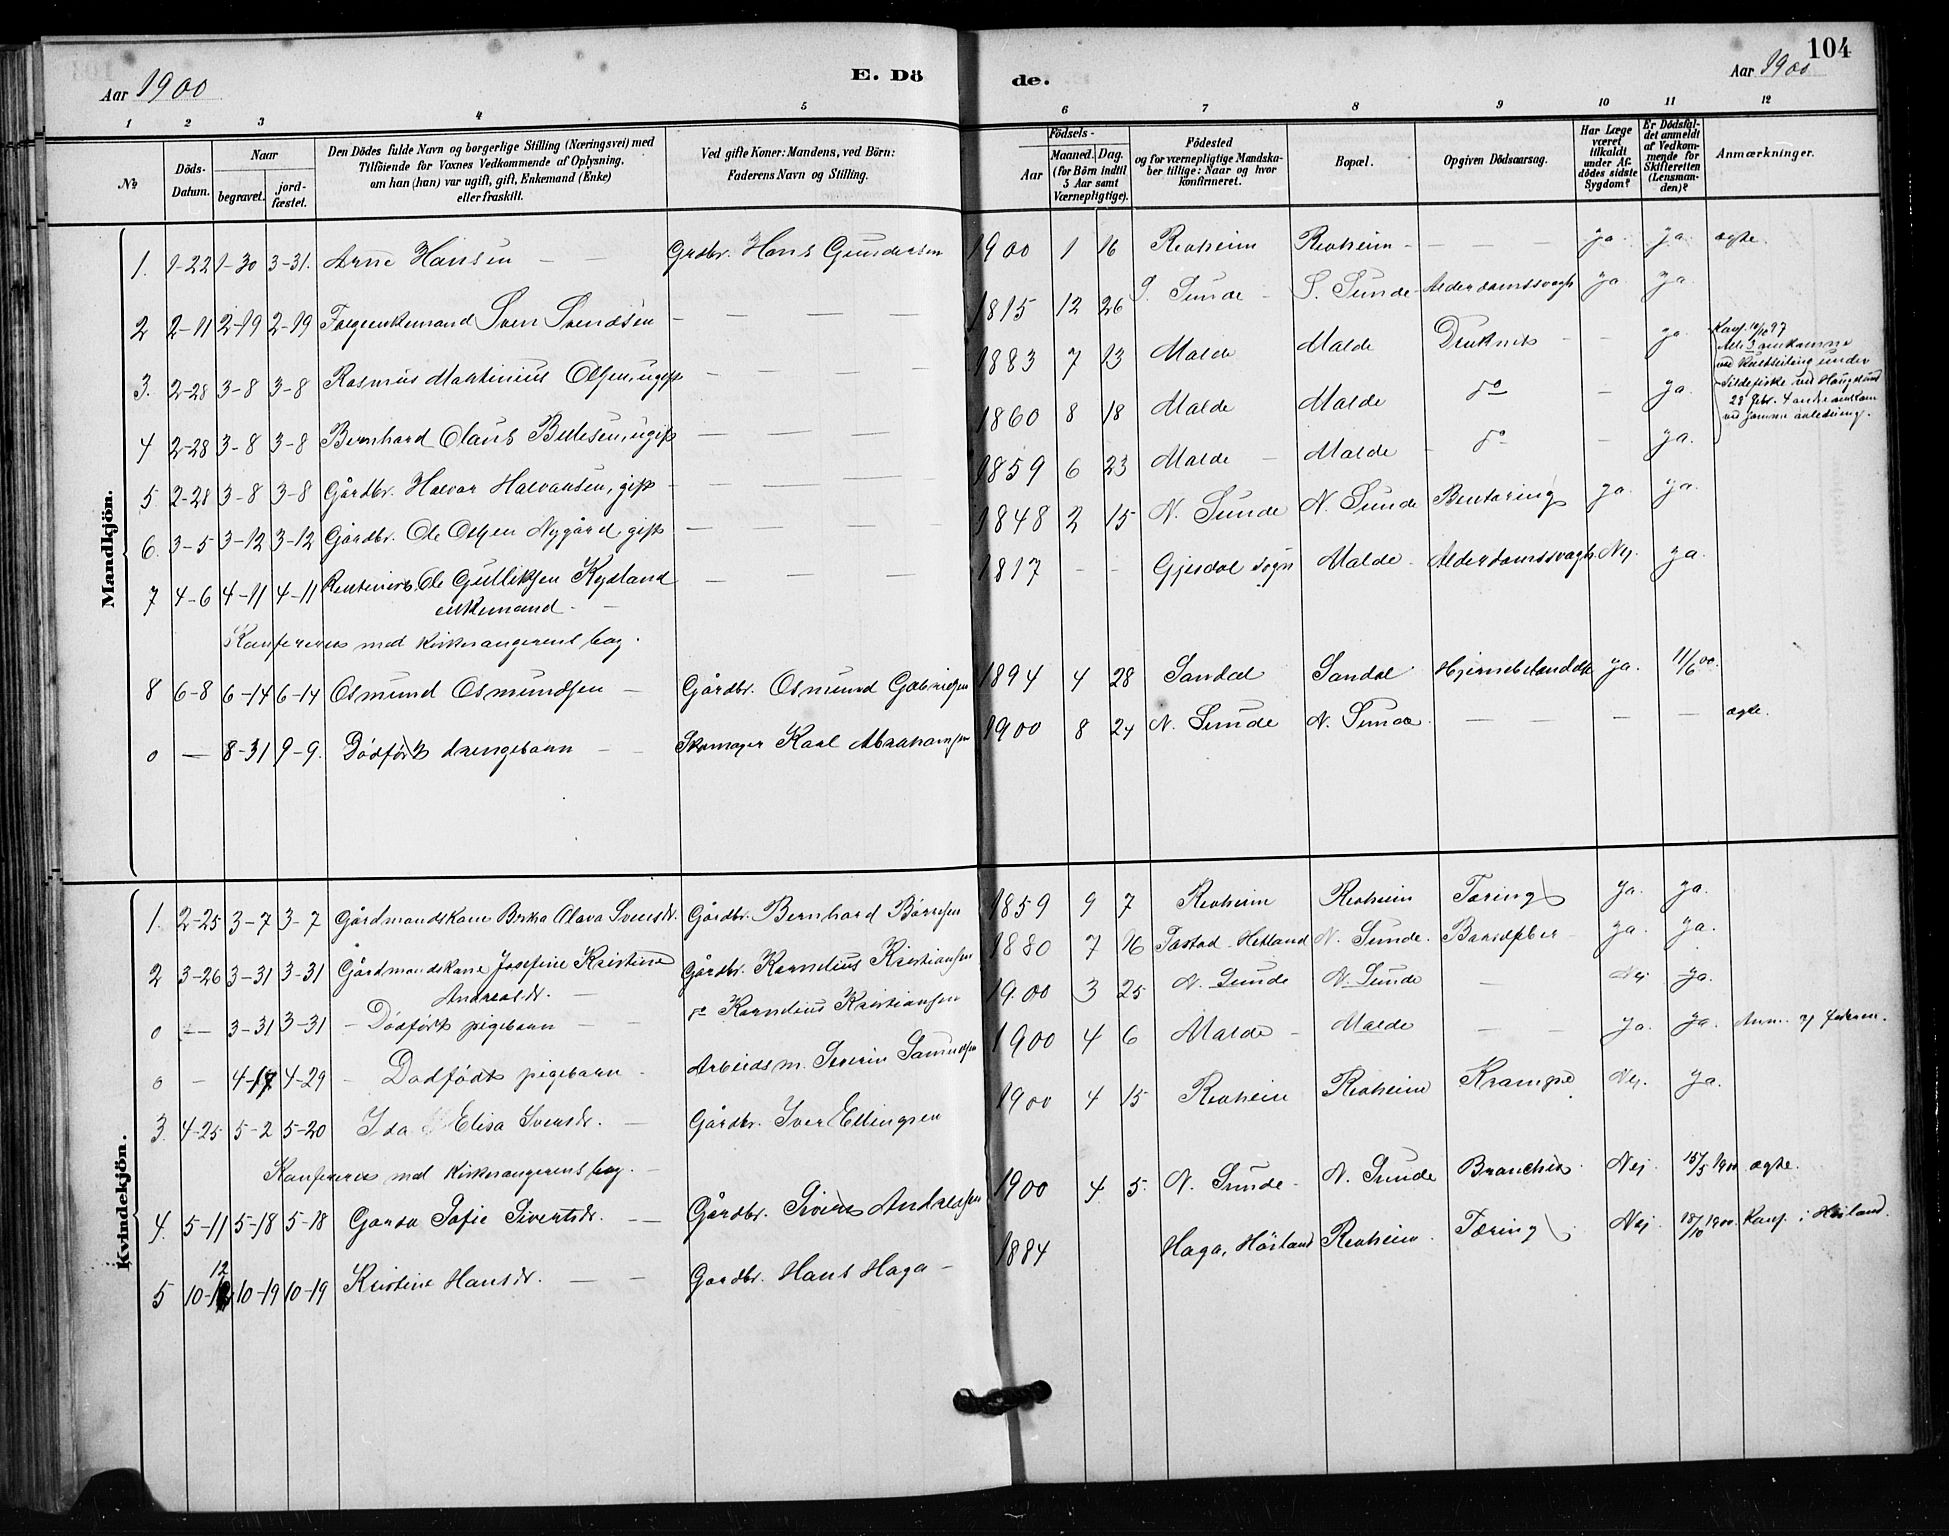 104
Aar 1900
E. Dö
de.
Aar 1900
1 2 3 4 5 6 7 8 9 10 11 12
№
Döds-Datum.
Naar
begravet.
jordfæstet.
Den Dödes fulde Navn og borgerlige Stilling (Næringsvei) med
Tilföiende for Voxnes Vedkommende af Oplysning,
om han (hun) var ugift, gift, Enkemand (Enke)
eller fraskilt.
Ved gifte Koner: Mandens, ved Börn:
Faderens Navn og Stilling.
Födsels-
Aar
Maaned. Dag.
(for Börn indtil
5 Aar samt
Værnepligtige).
Födested
og for værnepligtige Mandskaber tillige: Naar og hvor
konfirmeret.
Bopæl.
Opgiven Dödsaarsag.
Har Læge
været
tilkaldt
under Afdödes sidste
Sygdom?
Er Dödsfaldet anmeldt
af Vedkommende for
Skifteretten
(Lensmanden)?
Anmærkninger.
Mandkjön.
1. 1-22 1-30 3-31. Arne Hansen — — Grdbr. Hans Gundersen 1900 1 16 Revheim Revheim — — — ja. ja. ægte.
2 2-11 2-19 2-19 Folgeenkemand Sven Svendsen — — — 1815 12 26 S. Sunde — S. Sunde — Alderdomssvagh ja. ja.
3. 2-28 3-8 3-8 Rasmus Martinius Olsen, ugift — — — 1883 7 13 Malde Malde Druknet — — ja.
4 2-28 3-8 3-8 Bernhard Olaus Bertesen, ugift — — — 1860 8 18 Malde Malde do — ja.
Konf. 10/10 97
28 febr. 4 andre omkom
ved samme anledning.
5 2-28 3-8 3-8 Gårdbr. Halvor Halvorsen, gift — — — 1859 6 23 Malde — Malde do — ja.
6. 3-5 3-12 3-12 Gårdbr. Ole Olsen Nygård, gift — — — 1848 2 15 N. Sunde N. Sunde ja. ja.
7 4-6 4-11 4-11 Rentenist. Ole Gulliksen Kydland — — — 1817 - - Gjesdal sogn Malde — Alderdomssvagh. Nej. ja.
enkemand — —
Konfereres med Kirkesangerens bog.
8 6-8 6-14 6-14 Osmund Osmundsen — Gårdbr. Osmund Gabrielsen 1894 4 28 Sandal Sandal Hjernebetændelse ja. 11/6 00.
0 — 8-31 9-9. Dödfödt drengebarn — — Skomager Karl Abrahamsen 1900 8 24 N. Sunde N. Sunde. — — — — ægte.
Kvindekjön.
1. 2-25 3-7 3-7 Gårdmandskone Berta Olava Svensdr. Gårdbr. Bernhard Börresen 1859 9 7 Revheim Revheim Tæring ja. ja.
2 3-26 3-31 3-31 Gårdmandskone Josefine Kristine Gårdbr. Kornelius Kristiansen 1880 7 16 Tastad Hetland N. Sunde. Barselfeber — ja. ja.
Andreasdr. —
0 — 3-31 3-31 — Dödfödt pigebarn — — do Kornelius Kristiansen 1900 3 25 N. Sunde N. Sunde — Nej ja.
0 — 4-17 4-29 — Dodfödt pigebarn — Arbeidsm. Severin Samuelsen 1900 4 6 Malde — Malde — — ja. ja. Anm. af faderen.
3. 4-25 5-2 5-20 Ida Elisa Svensdr. — Gårdbr. Iver Ellingsen 1900 4 15 Revheim Revheim Krampe Nej. ja.
Konfereres med Kirkesangerens bog. —
4. 5-11 5-18 5-18 Garda Sofie Sivertsdr. — — Gårdbr. Sivert Andreassen 1900 4. 5. N. Sunde — N. Sunde Bronchit. Nej. 15/5 1900 ægte.
5 10-12 12 10-19 10-19 Kristine Hansdr. — — Gardbr. Hans Haga — 1884 Haga, Höiland Revheim. Tæring Nej. 18/10 1900. Konf. i Höiland.